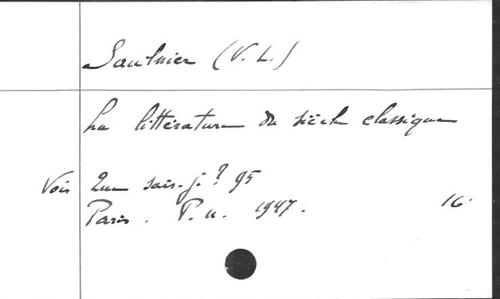 Saulnier (V. L.)
La littérature du siècle classique
Voir Que sais-je? 95
Paris. P.u. 1947. 16.